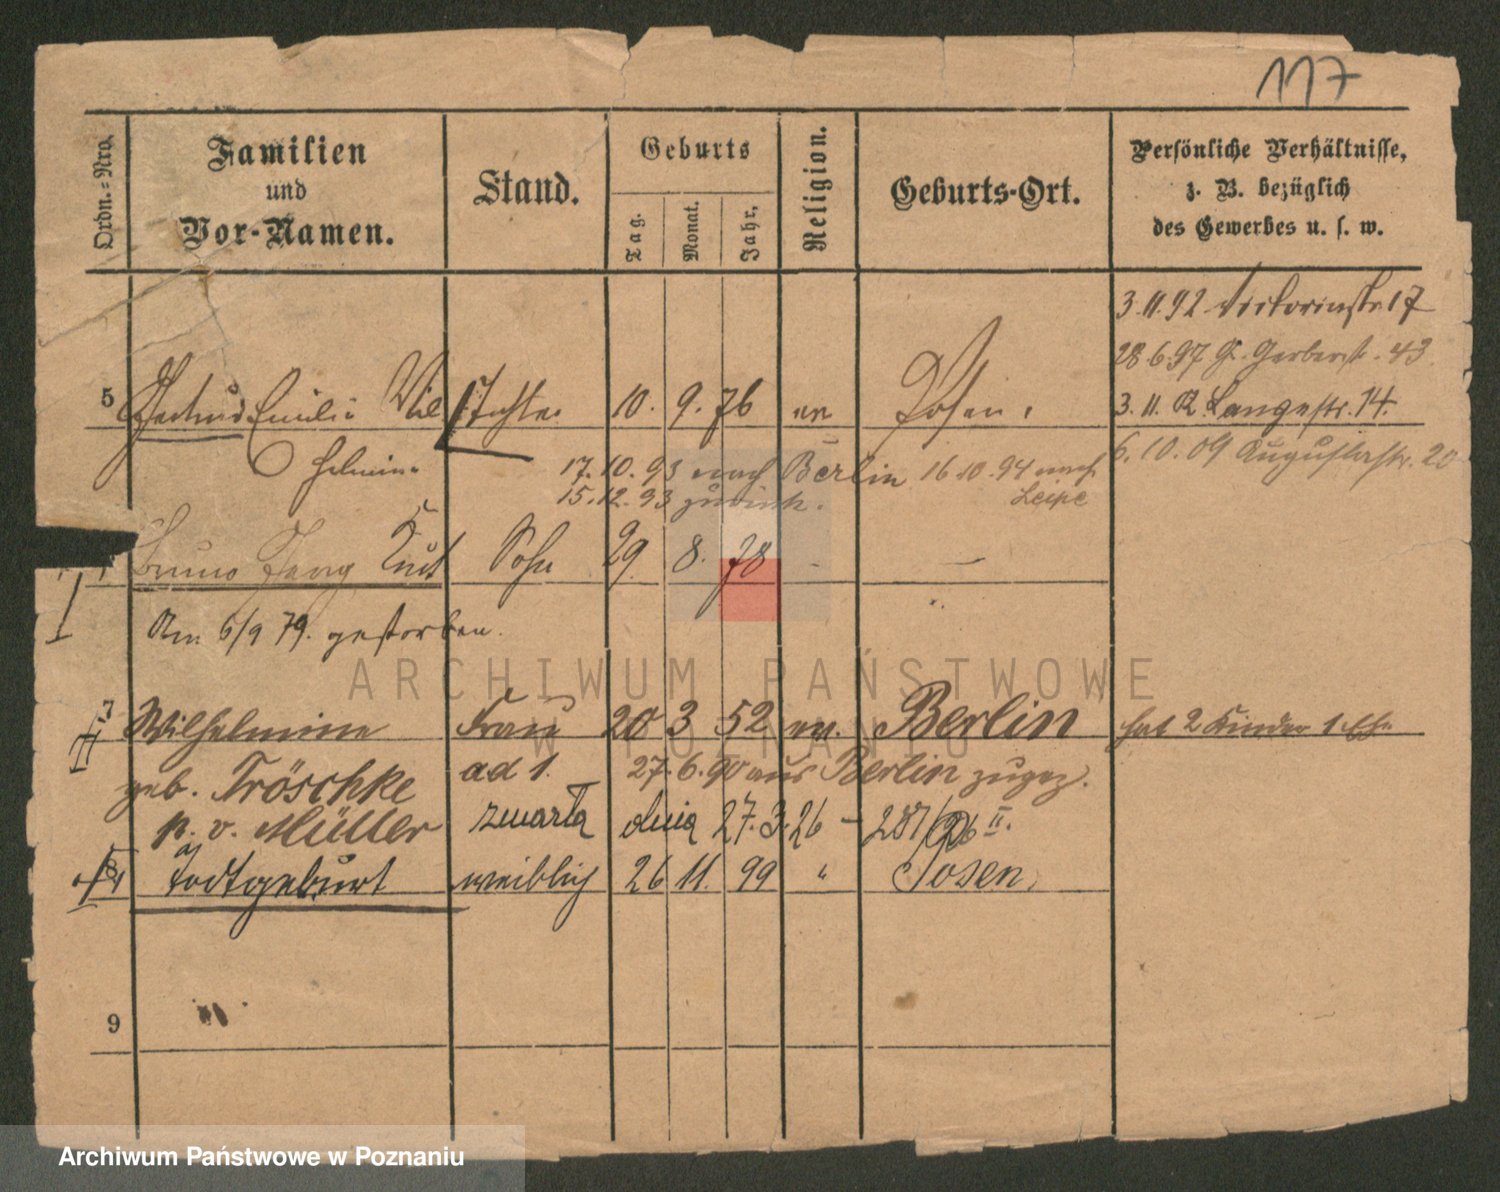 117
Ordn.-Nro.
Familien
und
Vor-Namen.
Stand.
Geburts
Tag.
Monat.
Jahr,
Religion.
Geburts-Ort.
Persönliche Verhältnisse,
z. B. bezüglich
des Gewerbes u. s. w.
3.11.92 Victoriastr. 17
28.6.97 Gr. Gerberstr. 43
5 Gertrud Emilie Wil Tochter 10. 9. 76 ev Posen. 3.11. Langestr. 14.
helmine
6.10.09 Augustastr. 20
17.10.93 nach Berlin 16 10.94 nach
15.12.93 zurück. Leipz
Bruno Georg Kurt Sohn 29 8. 78 -
Am 6/9 79. gestorben.
7 Wilhelmine Frau 20 3 52 ev. Berlin hat 2 Kinder 1. Ehe
geb. Tröschke ad 1. 27.6.90 aus Berlin zugez.
v. Müller zmarła dnia 27.3.26 - 287/26 II.
8 Todtgeburt weiblich 26 11. 99 " Posen.
9
ARCHIWUM PAŃSTWOWE
W POZNANIU
Archiwum Państwowe w Poznaniu